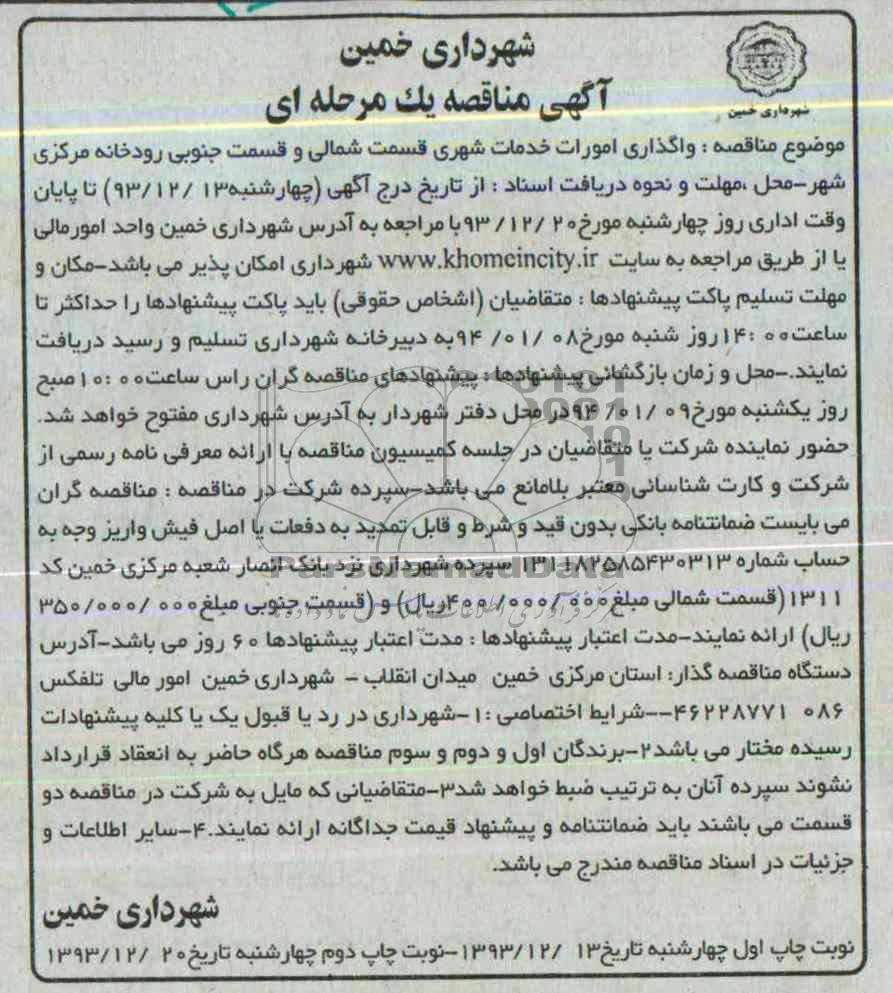 شهرداری خمین
آگهی مناقصه یك مرحله ای
شهرداری خمین
موضوع مناقصه : واگذاری امورات خدمات شهری قسمت شمالی و قسمت جنوبی رودخانه مرکزی
شهر-محل ،مهلت و نحوه دریافت اسناد : از تاریخ درج آگهی (چهارشنبه۱۳ /۹۳/۱۲) تا پایان
وقت اداری روز چهارشنبه مورخ۲۰ /۱۲ /۹۳با مراجعه به آدرس شهرداری خمین واحد امورمالی
یا از طریق مراجعه به سایت www.khomeincity.ir شهرداری امکان پذیر می باشد-مکان و
مهلت تسلیم پاکت پیشنهادها : متقاضیان (اشخاص حقوقی) باید پاکت پیشنهادها را حداکثر تا
ساعت۰۰ :۱۴روز شنبه مورخ۰۸ /۰۱ /۹۴به دبیرخانه شهرداری تسلیم و رسید دریافت
نمایند.-محل و زمان بازگشائی پیشنهادها : پیشنهادهای مناقصه گران راس ساعت۰۰ :۱۰صبح
روز یکشنبه مورخ۰۹ /۰۱ /۹۴در محل دفتر شهردار به آدرس شهرداری مفتوح خواهد شد.
حضور نماینده شرکت یا متقاضیان در جلسه کمیسیون مناقصه با ارائه معرفی نامه رسمی از
شرکت و کارت شناسائی معتبر بلامانع می باشد-سپرده شرکت در مناقصه : مناقصه گران
می بایست ضمانتنامه بانکی بدون قید و شرط و قابل تمدید به دفعات یا اصل فیش واریز وجه به
حساب شماره ۱۳۱۱۸۲۵۸۵۴۳۰۳۱۳ سپرده شهرداری نزد بانک انصار شعبه مرکزی خمین کد
۱۳۱۱(قسمت شمالی مبلغ۰۰۰ /۰۰۰ /۴۰۰ریال) و (قسمت جنوبی مبلغ۰۰۰ /۳۵۰/۰۰۰
ریال) ارائه نمایند-مدت اعتبار پیشنهادها : مدت اعتبار پیشنهادها ۶۰ روز می باشد-آدرس
دستگاه مناقصه گذار: استان مرکزی خمین میدان انقلاب – شهرداری خمین امور مالی تلفکس
۰۸۶ ۴۶۲۲۸۷۷۱--شرایط اختصاصی :۱-شهرداری در رد یا قبول یک یا کلیه پیشنهادات
رسیده مختار می باشد۲-برندگان اول و دوم و سوم مناقصه هرگاه حاضر به انعقاد قرارداد
نشوند سپرده آنان به ترتیب ضبط خواهد شد۳-متقاضیانی که مایل به شرکت در مناقصه دو
قسمت می باشند باید ضمانتنامه و پیشنهاد قیمت جداگانه ارائه نمایند.۴-سایر اطلاعات و
جزئیات در اسناد مناقصه مندرج می باشد.
شهرداری خمین
نوبت چاپ اول چهارشنبه تاریخ۱۳ /۱۳۹۳/۱۲-نوبت چاپ دوم چهارشنبه تاریخ۲۰ /۱۳۹۳/۱۲
ParsNamadData